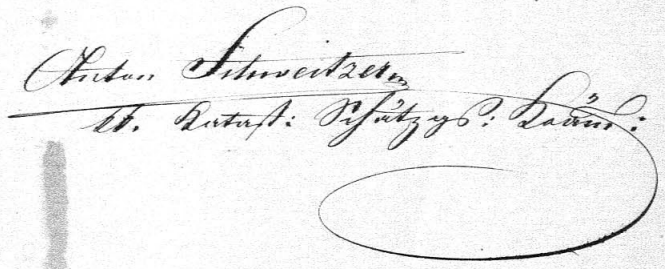 Anton Schweitzer
kk. Katast: Schätzgs: Koäm: